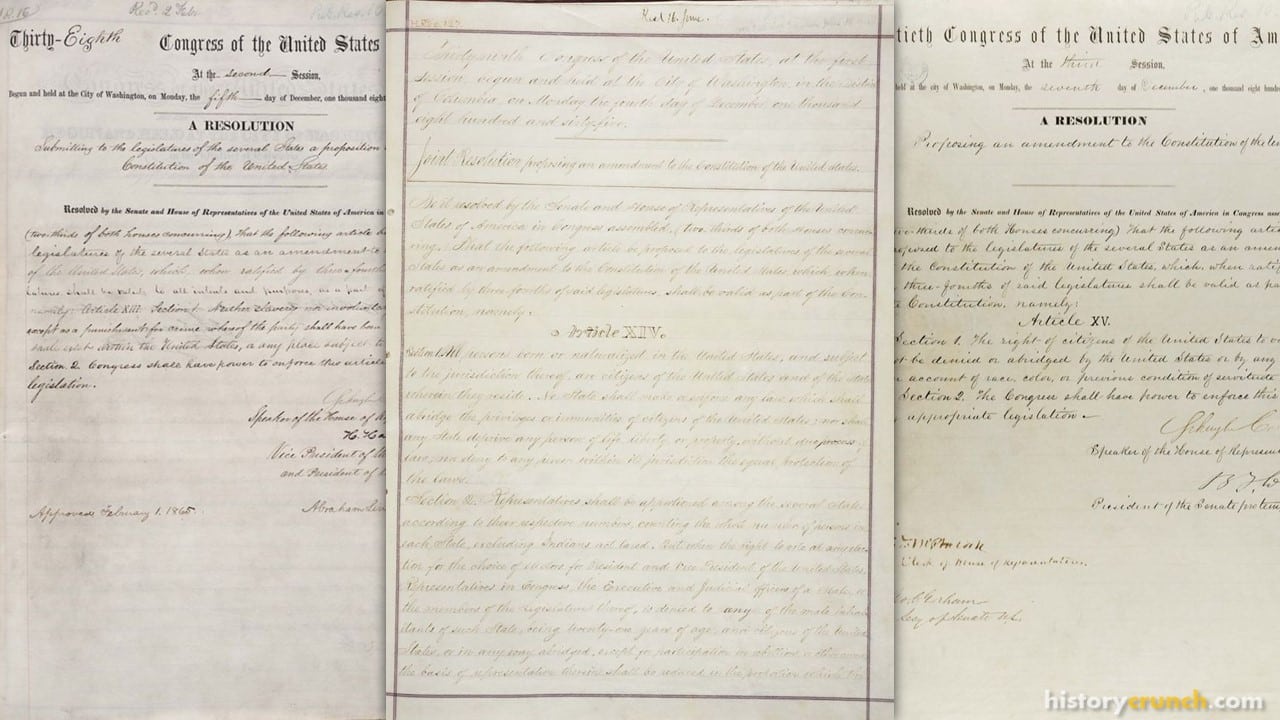 Thirty-Eighth Congress of the United States
At the second Session,
Begun and held at the City of Washington, on Monday, the fifth day of December, one thousand eight
A RESOLUTION
Submitting to the legislatures of the several States a proposition
Constitution of the United States.
Resolved by the Senate and House of Representatives of the United States of America in
(two-thirds of both houses concurring), That the following article b
legislatures of the several States as an amendment to
of the United States, which, when ratified by three-fourth
latures, shall be valid, to all intents and purposes, as a part of
namely: Article XIII. Section 1. Neither slavery nor involunt
except as a punishment for crime whereof the party shall have
shall exist within the United States, or any place subject to
Section 2. Congress shall have power to enforce this article
legislation.
Speaker of the House of
Vice President of
and President of
Approved, February 1. 1865.
Abraham
Thirty-ninth Congress of the United States, at the first
Session, begun and held at the City of Washington, in the District
of Columbia, on Monday the fourth day of December, one thousand
eight hundred and sixty-five.
Joint Resolution proposing an amendment to the Constitution of the United States.
Be it resolved by the Senate and House of Representatives of the United
States of America in Congress assembled, (two thirds of both Houses concur-
ring,) That the following article be proposed to the legislatures of the several
States as an amendment to the Constitution of the United States, which, when
ratified by three-fourths of said legislatures, shall be valid as part of the Con-
stitution, namely:
Article XIV.
Section 1. All persons born or naturalized in the United States, and subject
to the jurisdiction thereof, are citizens of the United States and of the State
wherein they reside. No State shall make or enforce any law which shall
abridge the privileges or immunities of citizens of the United States; nor shall
any State deprive any person of life, liberty, or property, without due process of
law; nor deny to any person within its jurisdiction the equal protection of
the laws.
Section 2. Representatives shall be apportioned among the several States
according to their respective numbers, counting the whole number of persons in
each State, excluding Indians not taxed. But when the right to vote at any elec-
tion for the choice of electors for President and Vice President of the United States,
Representatives in Congress, the Executive and Judicial officers of a State, or
the members of the Legislature thereof, is denied to any of the male inhabi-
tants of such State, being twenty-one years of age, and citizens of the United
States, or in any way abridged, except for participation in rebellion, or other crime,
the basis of representation therein shall be reduced in the proportion which the
tieth Congress of the United States of Am
At the third Session,
held at the city of Washington, on Monday, the seventh day of December, one thousand eight hund
A RESOLUTION
Proposing an amendment to the Constitution of the Un
Resolved by the Senate and House of Representatives of the United States of America in Congress ass
thirds of both Houses concurring) That the following artic
posed to the legislatures of the several States as an amen
the Constitution of the United States, which, when rati
three-fourths of said legislatures shall be valid as pa
Constitution, namely:
Article XV.
Section 1. The right of citizens of the United States to vo
not be denied or abridged by the United States or by any
account of race, color, or previous condition of servitude
Section 2. The Congress shall have power to enforce this
appropriate legislation
Speaker of the House of Represen
President of the Senate pro tem
Clerk of House of Representatives.
Secy of Senate U.S.
historycrunch.com